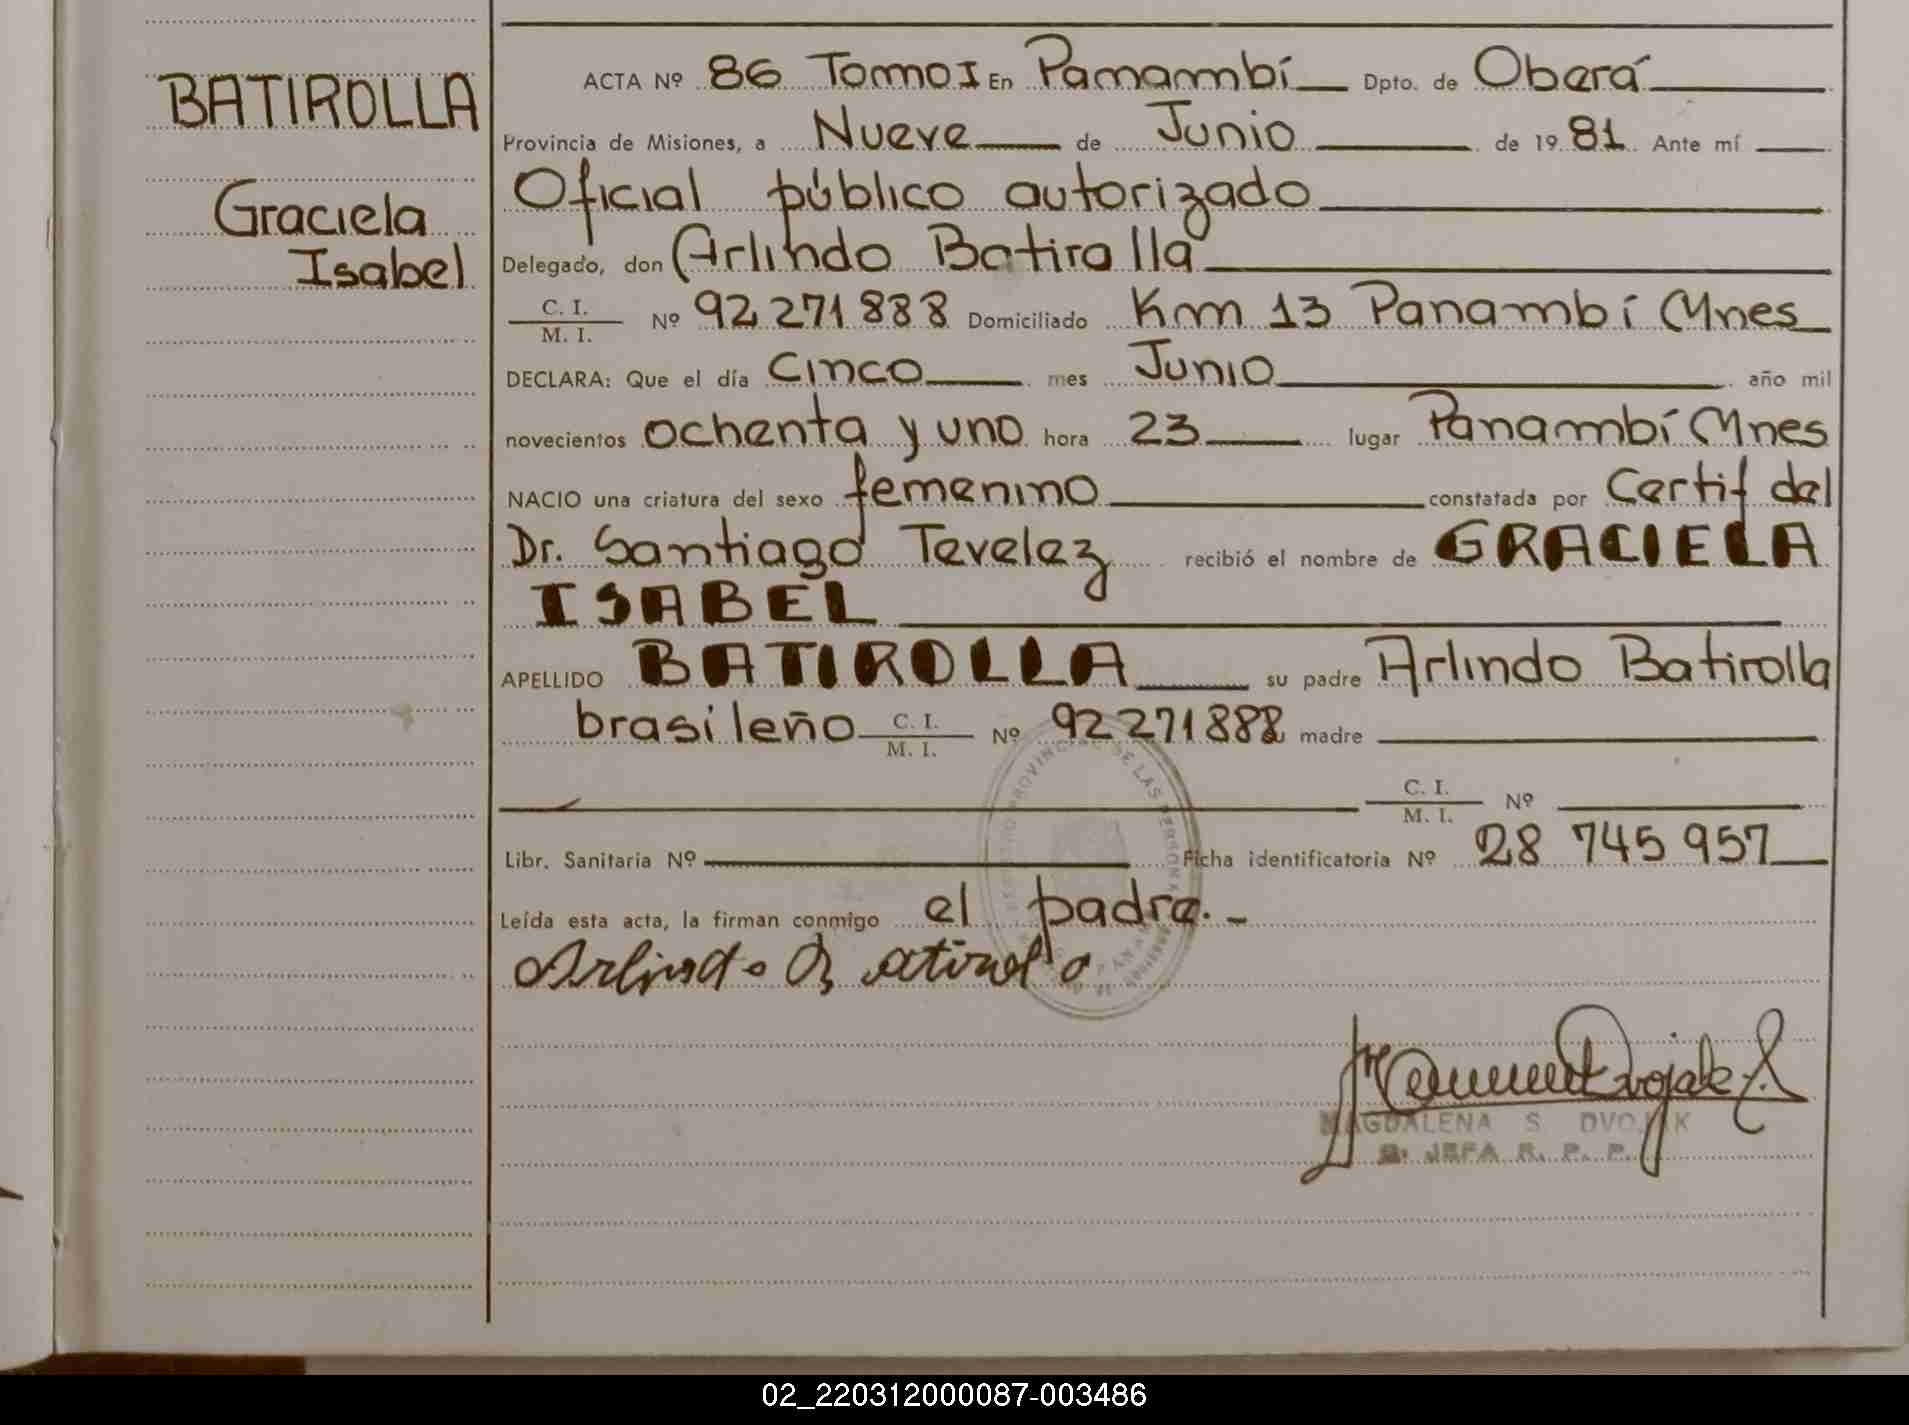 BATIROLLA
Graciela
Isabel
ACTA Nº 86 Tomo I En Panambí Dpto. de Oberá
Provincia de Misiones, a Nueve de Junio de 1981 Ante mí
Oficial público autorizado
Delegado, don Arlindo Batirolla
C. I. / M. I. Nº 92 271 888 Domiciliado Km 13 Panambí Mnes
DECLARA: Que el día cinco mes Junio año mil
novecientos ochenta y uno hora 23 lugar Panambí Mnes
NACIO una criatura del sexo femenino constatada por Certif del
Dr. Santiago Tevelez recibió el nombre de GRACIELA
ISABEL
APELLIDO BATIROLLA su padre Arlindo Batirolla
brasileño C. I. / M. I. Nº 92 271 888 madre
C. I. / M. I. Nº
Libr. Sanitaria Nº Ficha identificatoria Nº 28 745 957
Leída esta acta, la firman conmigo el padre.-
Arlindo Batirolla
MAGDALENA S. DVOJAK
JEFA R. P. P.
02_220312000087-003486